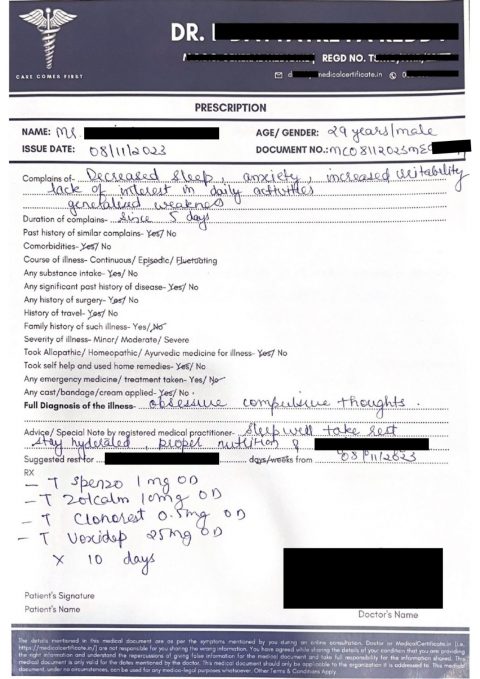 DR.
REGD NO.
CARE COMES FIRST
medicalcertificate.in
PRESCRIPTION
NAME: Mr.
AGE/ GENDER: 29 years/male
ISSUE DATE: 08/11/2023
DOCUMENT NO.:
Complains of- Decreased sleep, anxiety, increased irritability
lack of interest in daily activities
generalised weakness
Duration of complains- Since 5 days
Past history of similar complains- Yes/ No
Comorbidities- Yes/ No
Course of illness- Continuous/ Episodic/ Fluctuating
Any substance intake- Yes/ No
Any significant past history of disease- Yes/ No
Any history of surgery- Yes/ No
History of travel- Yes/ No
Family history of such illness- Yes/ No
Severity of illness- Minor/ Moderate/ Severe
Took Allopathic/ Homeopathic/ Ayurvedic medicine for illness- Yes/ No
Took self help and used home remedies- Yes/ No
Any emergency medicine/ treatment taken- Yes/ No
Any cast/bandage/cream applied- Yes/ No
Full Diagnosis of the illness- obsessive compulsive thoughts.
Advice/ Special Note by registered medical practitioner- Sleep well take rest
stay hyderated, proper nutrition &
Suggested rest for days/weeks from 08/11/2023
RX
- T Spenzo 1 mg OD
- T Zolcalm 10mg OD
- T Clonorest 0.5mg OD
- T Voxidep 25mg OD
x 10 days
Patient's Signature
Patient's Name
Doctor's Name
The details mentioned in this medical document are as per the symptoms mentioned by you during an online consultation. Doctor or MedicalCertificate.in (i.e.
https://medicalcertificate.in/) are not responsible for you sharing the wrong information. You have agreed while sharing the details of your condition that you are providing
the right information and understand the repercussions of giving false information for the medical document and take full responsibility for the information shared. This
medical document is only valid for the dates mentioned by the doctor. This medical document should only be applicable to the organization it is addressed to. This medical
document, under no circumstances, can be used for any medico-legal purposes whatsoever. Other Terms & Conditions Apply